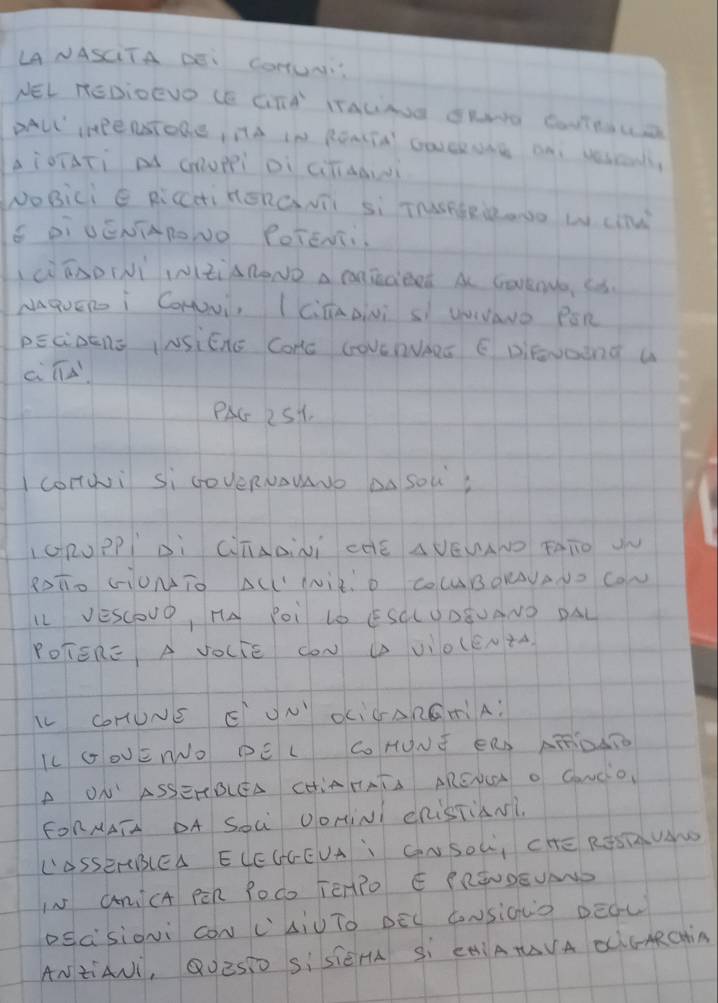 LA NASCITA DEI COMUNI:
NEL MEDIOEVO LE CITTA' ITALIANE ERANO CONTROLLATE
DALL'IMPERATORE, MA IN REALTA' GOVERNATE DAI VESCOVI,
AIUTATI DA GRUPPI DI CITTADINI
NOBILI E RICCHI MERCANTI SI TRASFERIRONO IN CITTA'
E DIVENTARONO POTENTI.
I CITTADINI INIZIARONO A PARTECIPARE AL GOVERNO, COSI'
NACQUERO I COMUNI, I CITTADINI SI UNIVANO PER
DECIDERE INSIEME COME GOVERNARE E DIFENDERE LA
CITTA'.
PAG 251.
I COMUNI SI GOVERNAVANO DA SOLI:
I GRUPPI DI CITTADINI CHE AVEVANO FATTO UN
PATTO GIURATO ALL'INIZIO COLLABORAVANO CON
IL VESCOVO, MA POI LO ESCLUDEVANO DAL
POTERE, A VOLTE CON LA VIOLENZA.
IL COMUNE E' UN' OLIGARCHIA:
IL GOVERNO DEL COMUNE ERA AFFIDATO
A UN' ASSEMBLEA CHIAMATA ARENGA O CONCIO,
FORMATA DA SOLI UOMINI CRISTIANI.
L'ASSEMBLEA ELEGGEVA I CONSOLI, CHE RESTAVANO
IN CARICA PER POCO TEMPO E PRENDEVANO
DECISIONI CON L'AIUTO DEL CONSIGLIO DEGLI
ANZIANI. QUESTO SISTEMA SI CHIAMAVA OLIGARCHIA